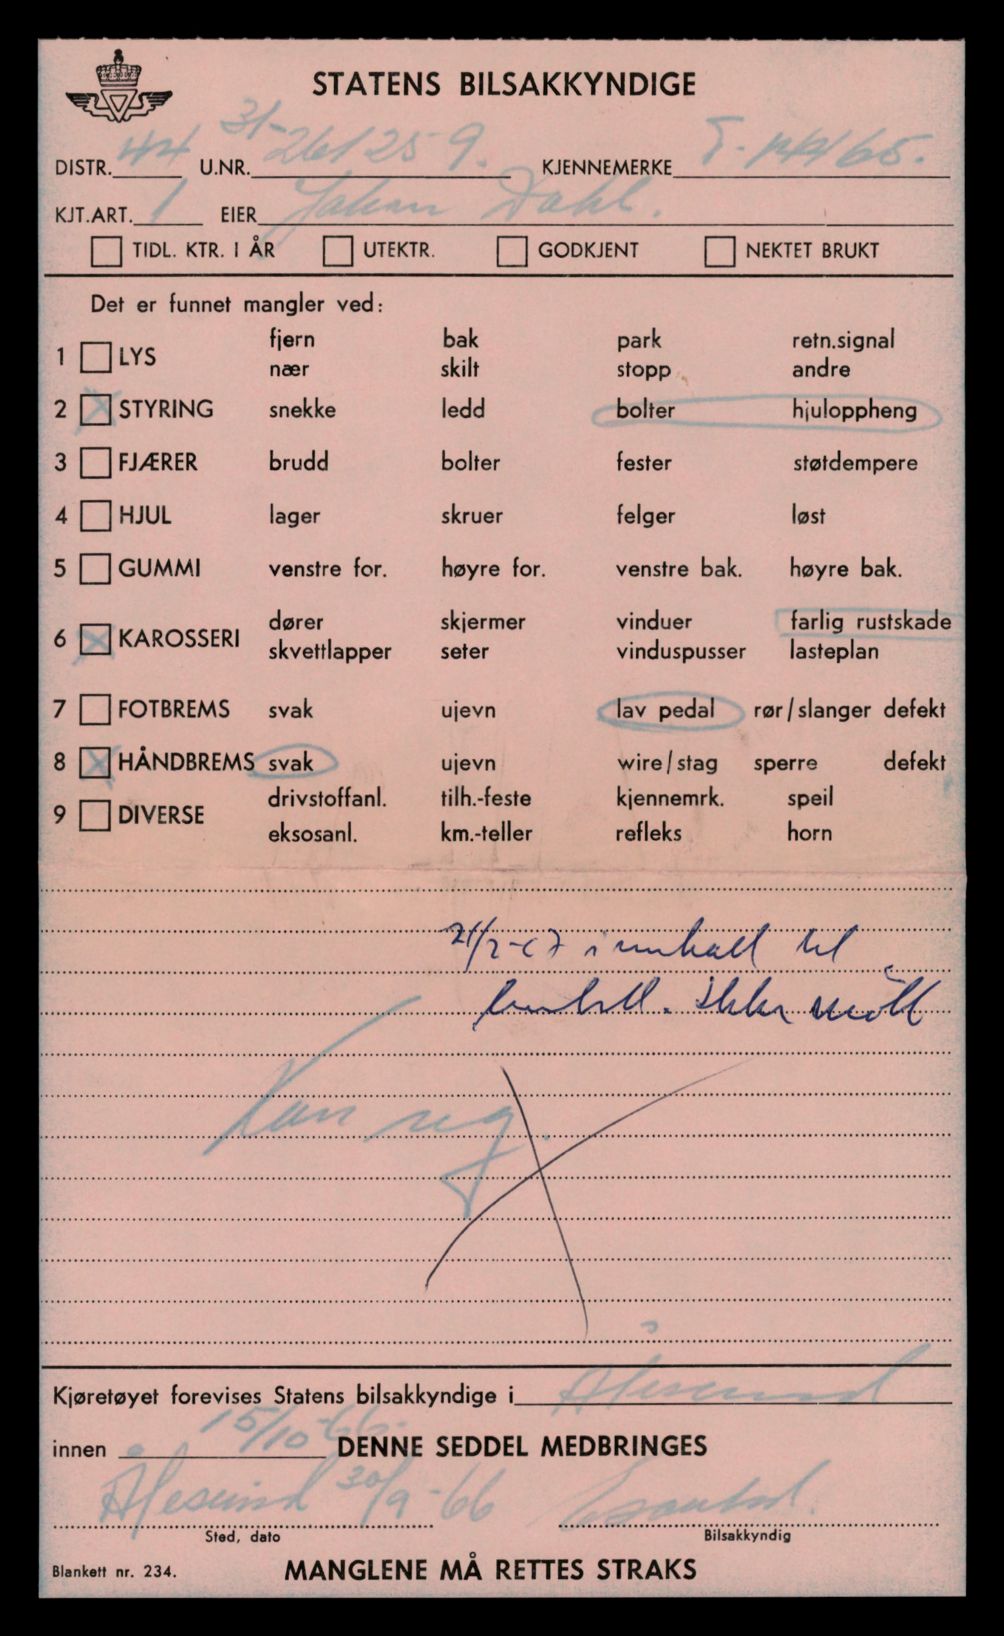 STATENS BILSAKKYNDIGE
DISTR. 44 U.NR. 31-261259. KJENNEMERKE T-14465.
KJT.ART. 1 EIER Johan Dahl.
TIDL. KTR. I ÅR UTEKTR. GODKJENT NEKTET BRUKT
Det er funnet mangler ved:
1 LYS fjern bak park retn.signal
nær skilt stopp andre
2 STYRING snekke ledd bolter hjuloppheng
3 FJÆRER brudd bolter fester støtdempere
4 HJUL lager skruer felger løst
5 GUMMI venstre for. høyre for. venstre bak. høyre bak.
6 KAROSSERI dører skjermer vinduer farlig rustskade
skvettlapper seter vinduspusser lasteplan
7 FOTBREMS svak ujevn lav pedal rør/slanger defekt
8 HÅNDBREMS svak ujevn wire/stag sperre defekt
9 DIVERSE drivstoffanl. tilh.-feste kjennemrk. speil
eksosanl. km.-teller refleks horn
21/2-67 innkalt til
. Ikke møtt
Kan reg.
Kjøretøyet forevises Statens bilsakkyndige i Ålesund
innen 15/10-66. DENNE SEDDEL MEDBRINGES
Ålesund 30/9-66
Sted, dato Bilsakkyndig
Blankett nr. 234. MANGLENE MÅ RETTES STRAKS